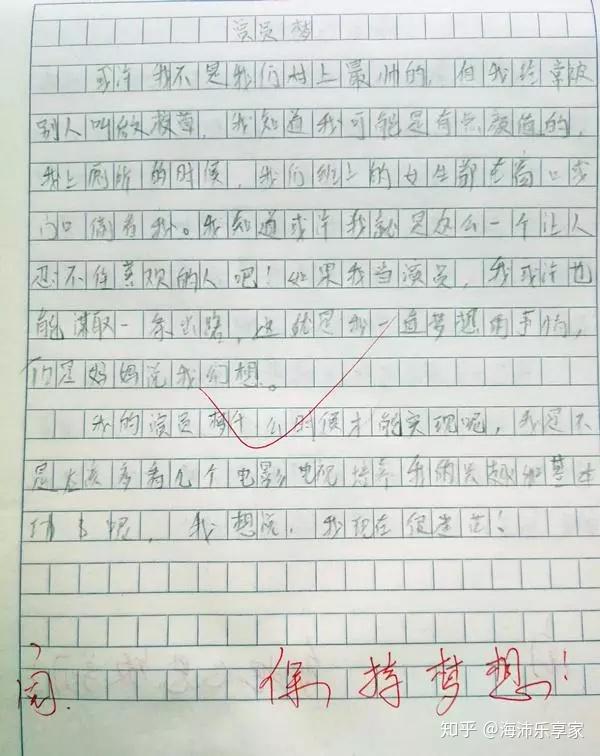 演员梦
或许我不是我们村上最帅的，但我经常被
别人叫做校草，我知道我可能是有点颜值的，
我上厕所的时候，我们班上的女生都在窗口或
门口偷看我。我知道或许我就是这么一个让人
忍不住喜欢的人吧！如果我当演员，我或许也
能谋取一条出路，这就是我一直梦想的事情，
但是妈妈说我幻想。
我的演员梦什么时候才能实现呢，我是不
是应该多看几个电影电视培养我的兴趣和基本
我想说，我现在很迷茫！
阅.
保持梦想！
知乎 @海沛乐享家